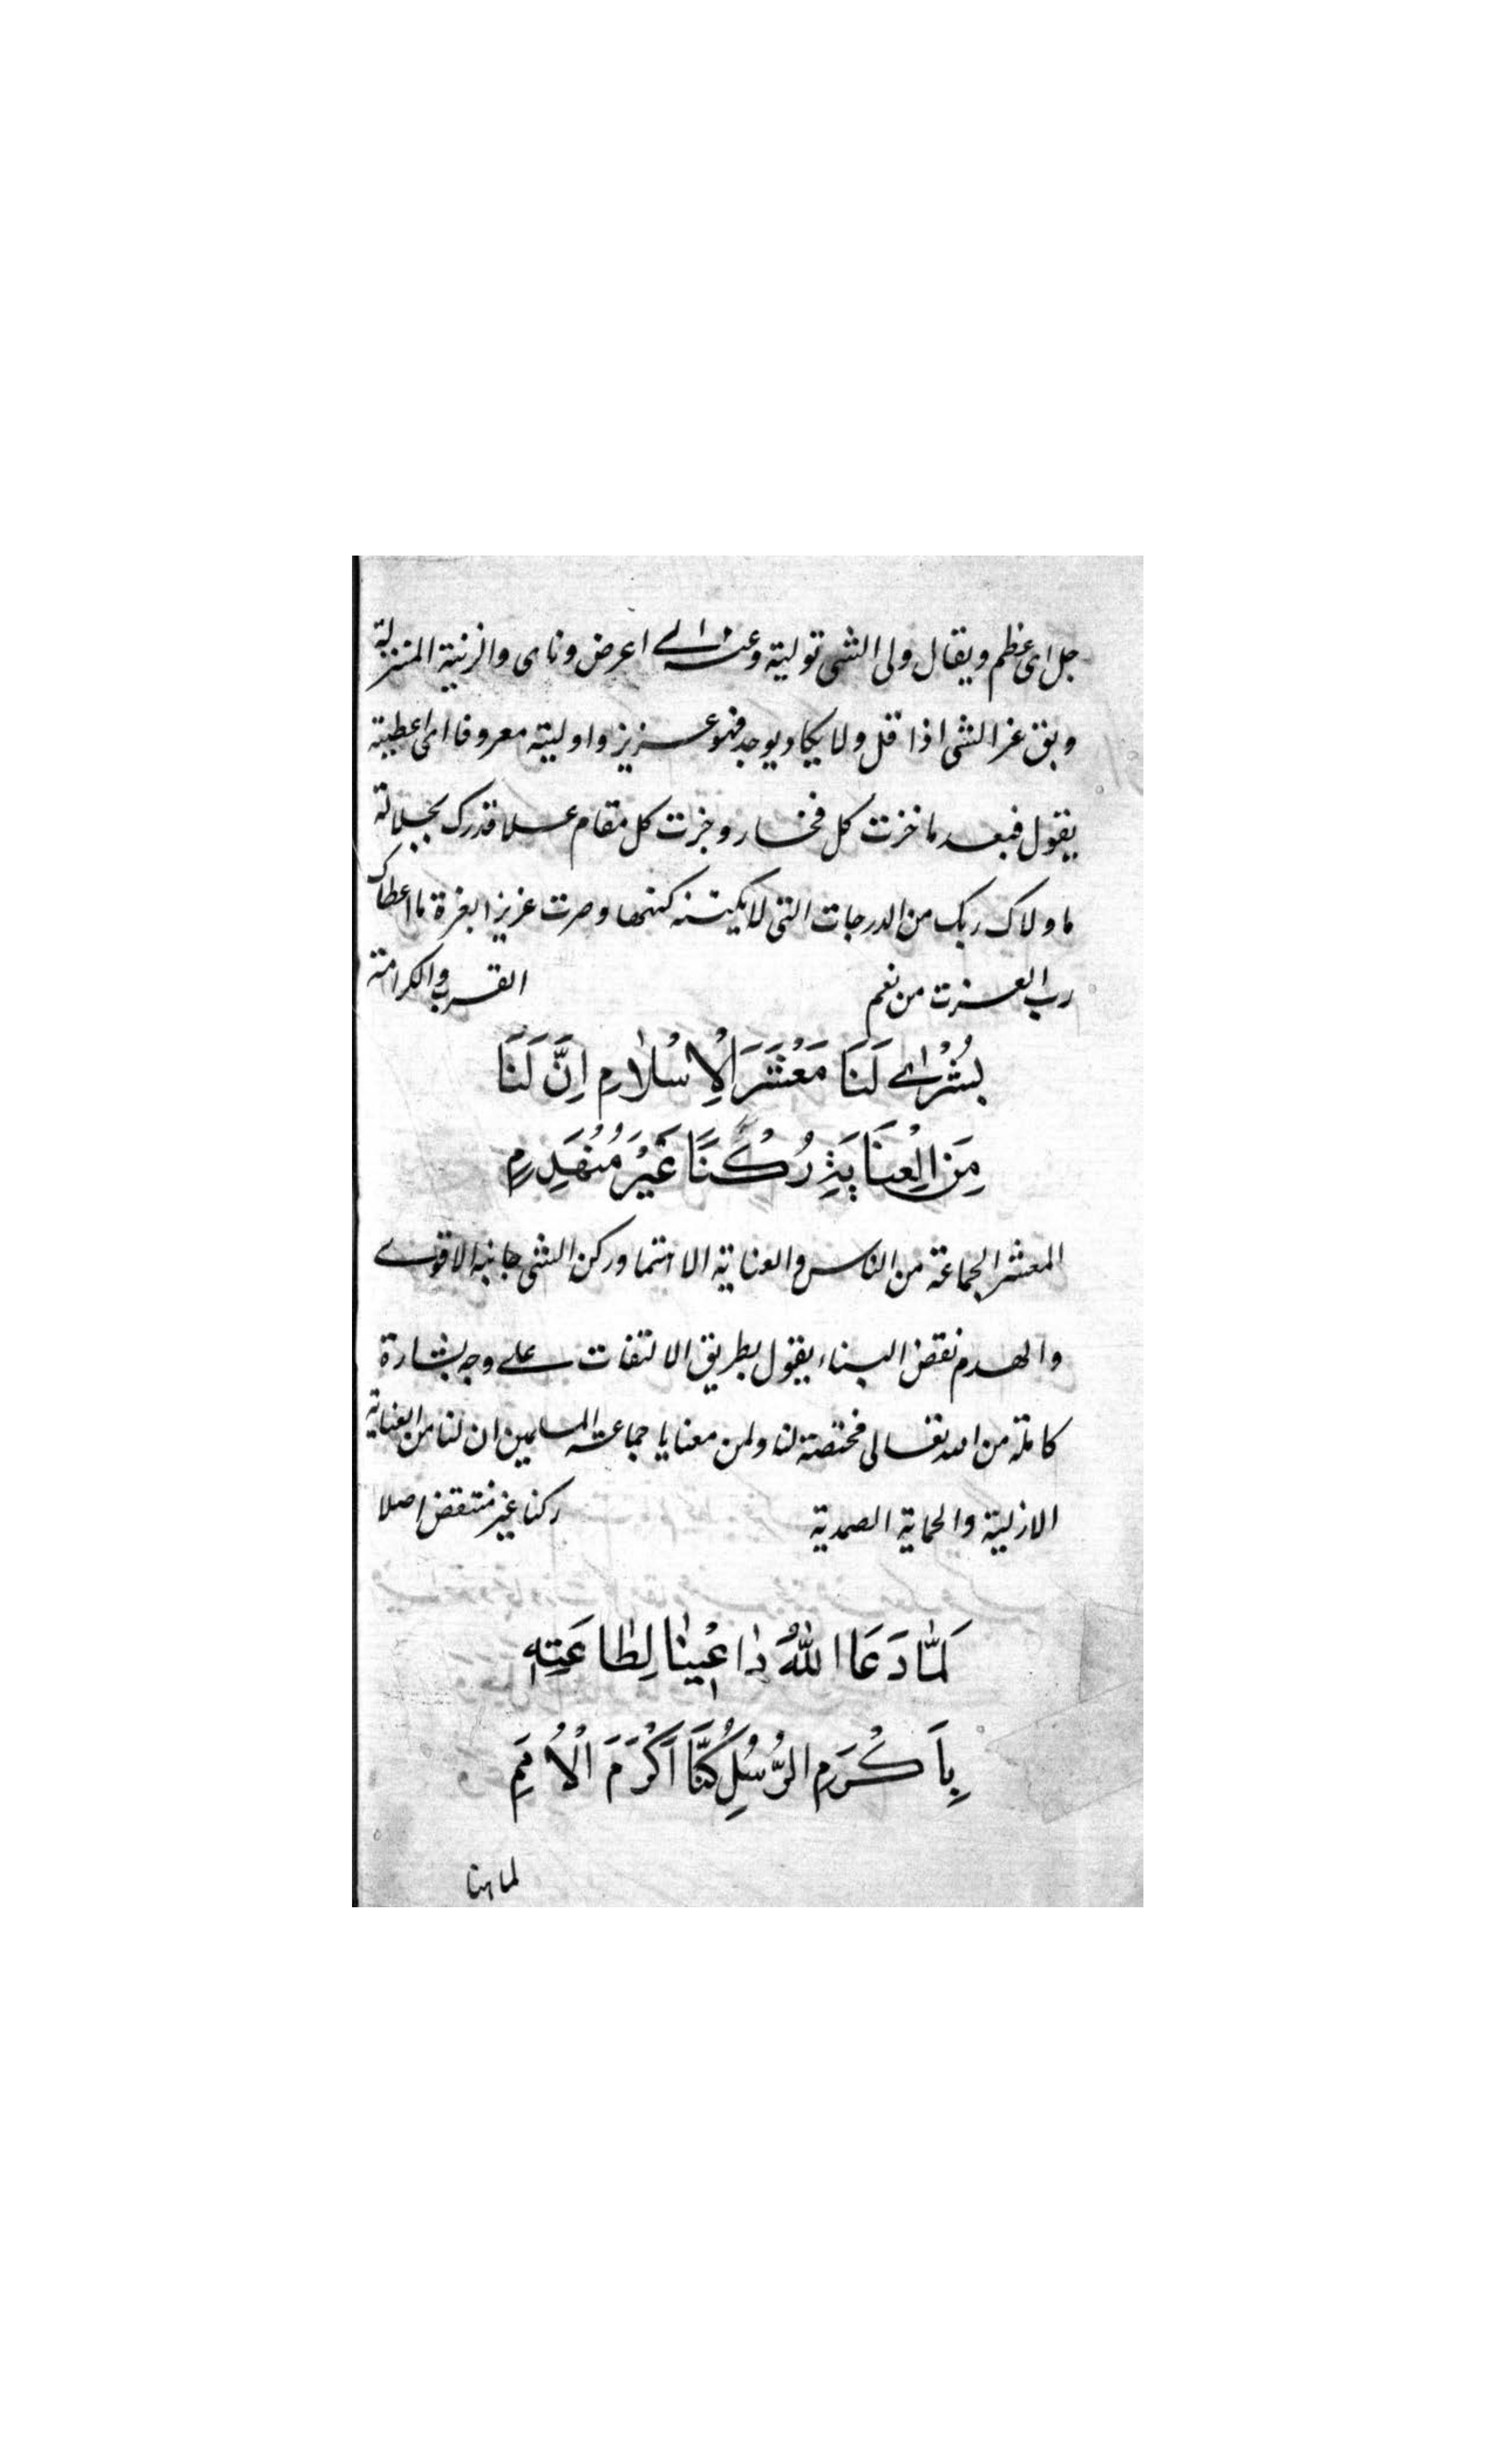 جل اى عظم ويقال ولى الشى توليته وعنه الے اعرض وناى والرتبة المنزلة
ويق عز الشى اذا قل ولا يكاد يوجد فهو عزيز واوليته معروفا اى اعطيته
يقول فبعد ما حزت كل فخار وجزت كل مقام علا قدرك بجلالة
ما ولاك ربك من الدرجات التى لا يكتنه كنهها وصرت عزيزا بعزة ما اعطاك
رب العزت من نعم القرب والكرامة
بُشْرٰے لَنَا مَعْشَرَ الْاِسْلَامِ اِنَّ لَنَا
مِنَ الْعِنَايَةِ رُكْنًا غَيْرَ مُنْهَدِمِ
المعشر الجماعة من الناس والعناية الاهتما وركن الشى جانبه الاقوے
والهدم نقض البناء يقول بطريق الالتفات علے وجه بشارة
كاملة من الله تعالى مختصة لنا ولمن معنا يا جماعة المسلمين ان لنا من العناية
الازلية والحماية الصمدية ركنا غير منتقض اصلا
لَمَّا دَعَا اللّٰهُ دَاعِيْنَا لِطَاعَتِهٖ
بِاَكْرَمِ الرُّسُلِ كُنَّا اَكْرَمَ الْاُمَمِ